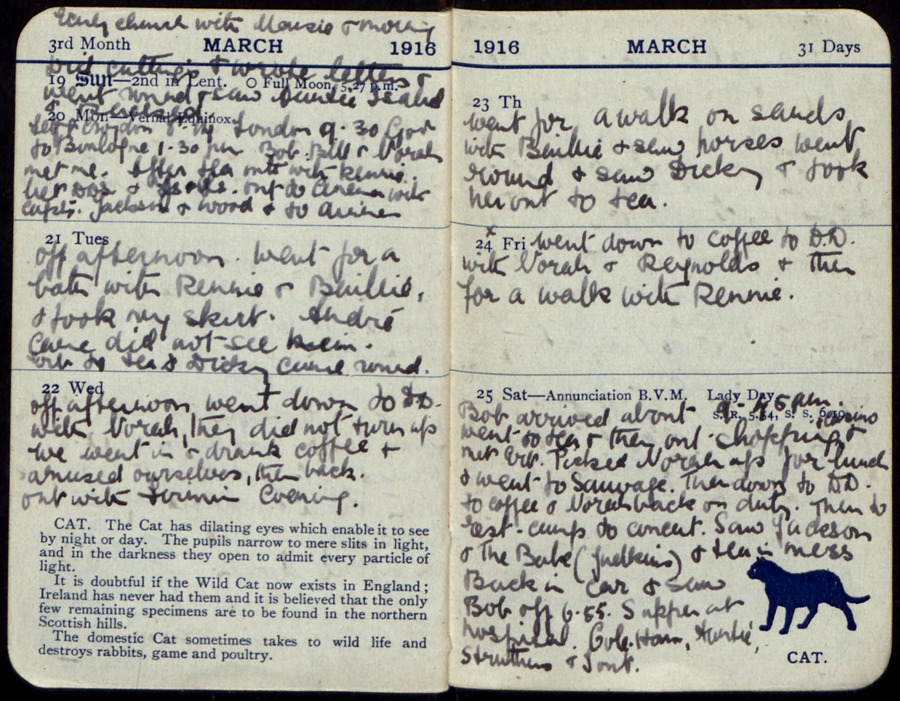 Early church with Mausie & morning
3rd Month MARCH 1916
Did cuttings & wrote letters &
19 Sun—2nd in Lent. O Full Moon, 5.27 p.m.
went round & saw Auntie
20 Mon—Vernal Equinox
Left Croydon London 9.30 Good
to Boulogne 1.30 pm Bob. Bill & Norah
met me. After tea out with Rennie.
out to Cinema with
Capts. Jackson & Wood & to dinner
21 Tues
off afternoon. Went for a
bath with Rennie & Baillie,
& took my skirt. André
came did not see him.
out to tea & Dicky came round.
22 Wed
off afternoon, went down to DD.
with Norah, they did not turn up
we went in & drank coffee &
amused ourselves, then back.
out with evening.
CAT. The Cat has dilating eyes which enable it to see
by night or day. The pupils narrow to mere slits in light,
and in the darkness they open to admit every particle of
light.
It is doubtful if the Wild Cat now exists in England;
Ireland has never had them and it is believed that the only
few remaining specimens are to be found in the northern
Scottish hills.
The domestic Cat sometimes takes to wild life and
destroys rabbits, game and poultry.
1916 MARCH 31 Days
23 Th
went for a walk on sands
with Baillie & saw horses went
round & saw Dicky & took
her out to tea.
x
24 Fri went down to coffee to D.D.
with Norah & Reynolds & then
for a walk with Rennie.
25 Sat—Annunciation B.V.M. Lady Day
S. R. 5.54, S. S. 6.19
Bob arrived about 9.45 am. Casino
went to tea & then out shopping &
met Picked Norah up for lunch
& went to Sauvage. Then down to DD.
to coffee & Norah back on duty. Then to
rest-camp to concert. Saw Jackson
& The Babe (Judkins) & tea in mess
Back in car & saw
Bob off 6.55. Supper at
hospital. Cole-Ham,
Struthers & Tont.
CAT.